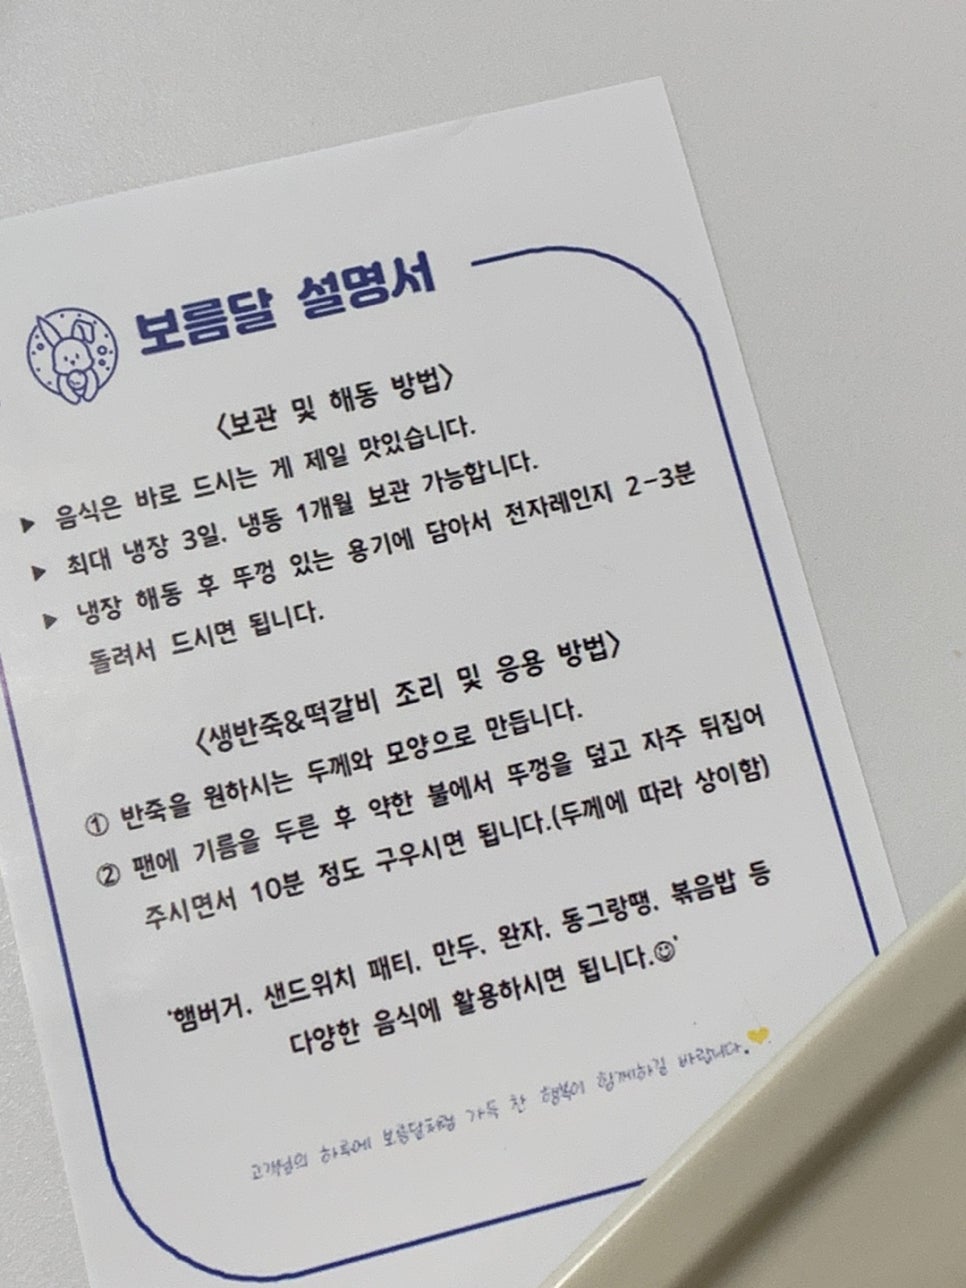 보름달 설명서
<보관 및 해동 방법>
▶ 음식은 바로 드시는 게 제일 맛있습니다.
▶ 최대 냉장 3일, 냉동 1개월 보관 가능합니다.
▶ 냉장 해동 후 뚜껑 있는 용기에 담아서 전자레인지 2-3분
돌려서 드시면 됩니다.
<생반죽&떡갈비 조리 및 응용 방법>
① 반죽을 원하시는 두께와 모양으로 만듭니다.
② 팬에 기름을 두른 후 약한 불에서 뚜껑을 덮고 자주 뒤집어
주시면서 10분 정도 구우시면 됩니다.(두께에 따라 상이함)
'햄버거, 샌드위치 패티, 만두, 완자, 동그랑땡, 볶음밥 등
다양한 음식에 활용하시면 됩니다.☺'
고객님의 하루에 보름달처럼 가득 찬 행복이 함께하길 바랍니다.💛